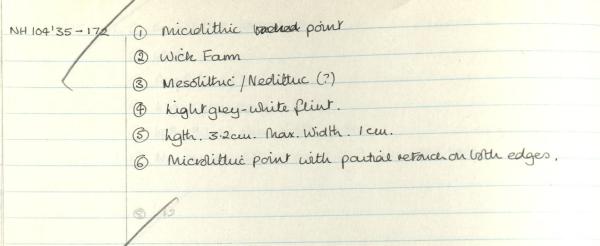 NH 104'35-172 ① Microlithic backed point
② Wick Farm
③ Mesolithic/Neolithic (?)
④ Light grey-white flint.
⑤ Lgth. 3.2cm. Max. Width. 1cm.
⑥ Microlithic point with partial retouch on both edges.